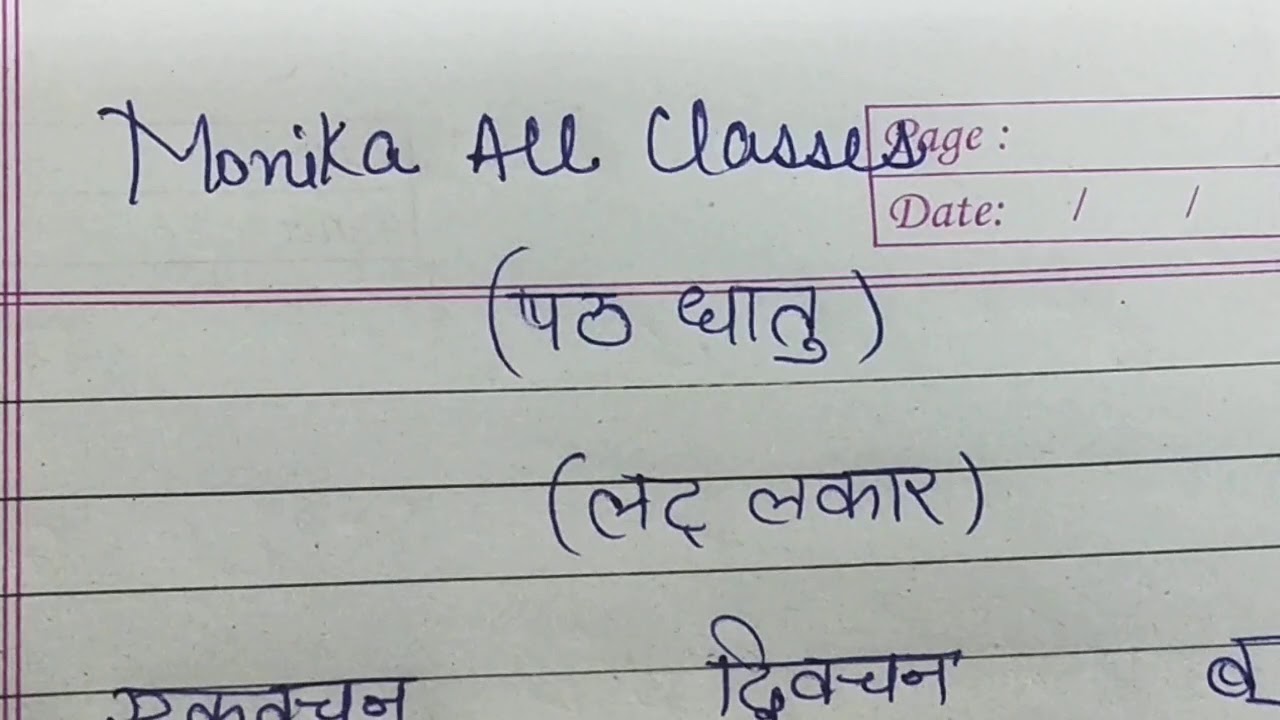 Monika All Classes
Page :
Date: / /
(पठ धातु)
(लट् लकार)
एकवचन द्विवचन ब